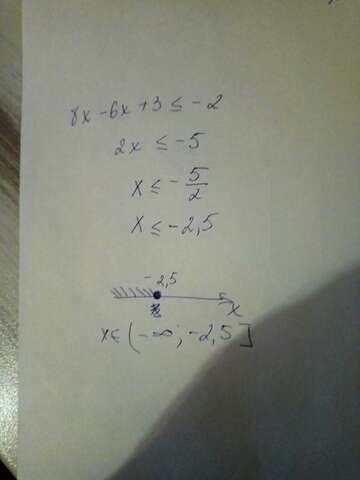 8x - 6x + 3 ≤ -2
2x ≤ -5
x ≤ - 5/2
x ≤ -2,5
-2,5
x
x ∈ (-∞; -2,5]